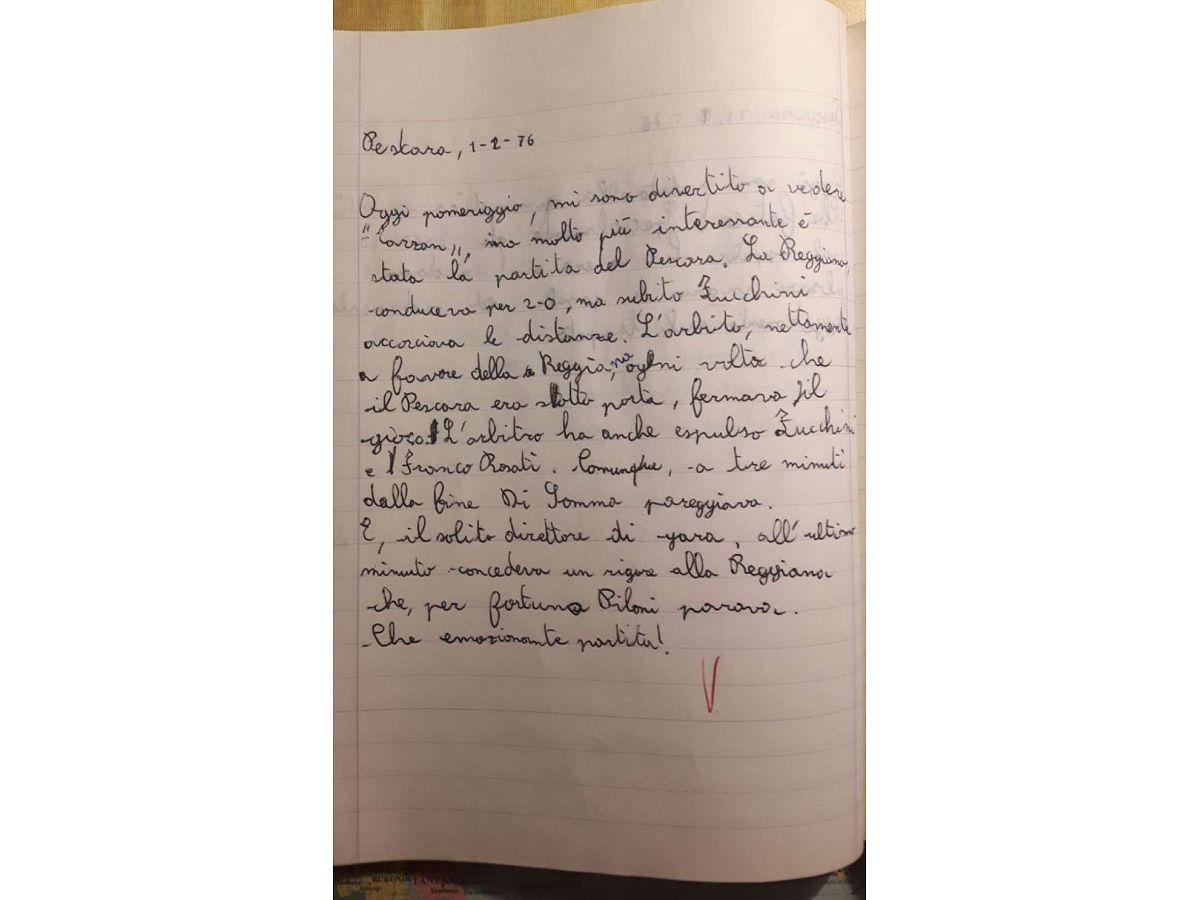 Pescara, 1-2-76
Oggi pomeriggio, mi sono divertito a vedere
"Tarzan,,, ma molto più interessante è
stata la partita del Pescara. La Reggiana,
conduceva per 2-0, ma subito Zucchini
accorciava le distanze. L'arbito, nettamente
a favore della Reggiana, ogni volta che
il Pescara era sotto porta, fermava il
gioco. L'arbitro ha anche espulso Zucchini
e Franco Rosati. Comunque, a tre minuti
dalla fine Di Somma pareggiava.
E, il solito direttore di gara, all'ultimo
minuto concedeva un rigore alla Reggiana
che, per fortuna Piloni parava.
Che emozionante partita!
V
BURUNDI TANZANIA
Dodoma